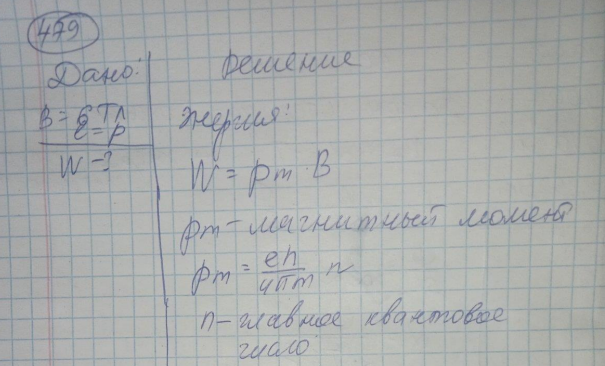 479
Дано:
B = 6 Тл
ℓ = p
W - ?
Решение
Энергия:
W = pm · B
pm - магнитный момент
pm = eh/4πm n
n - главное квантовое
число